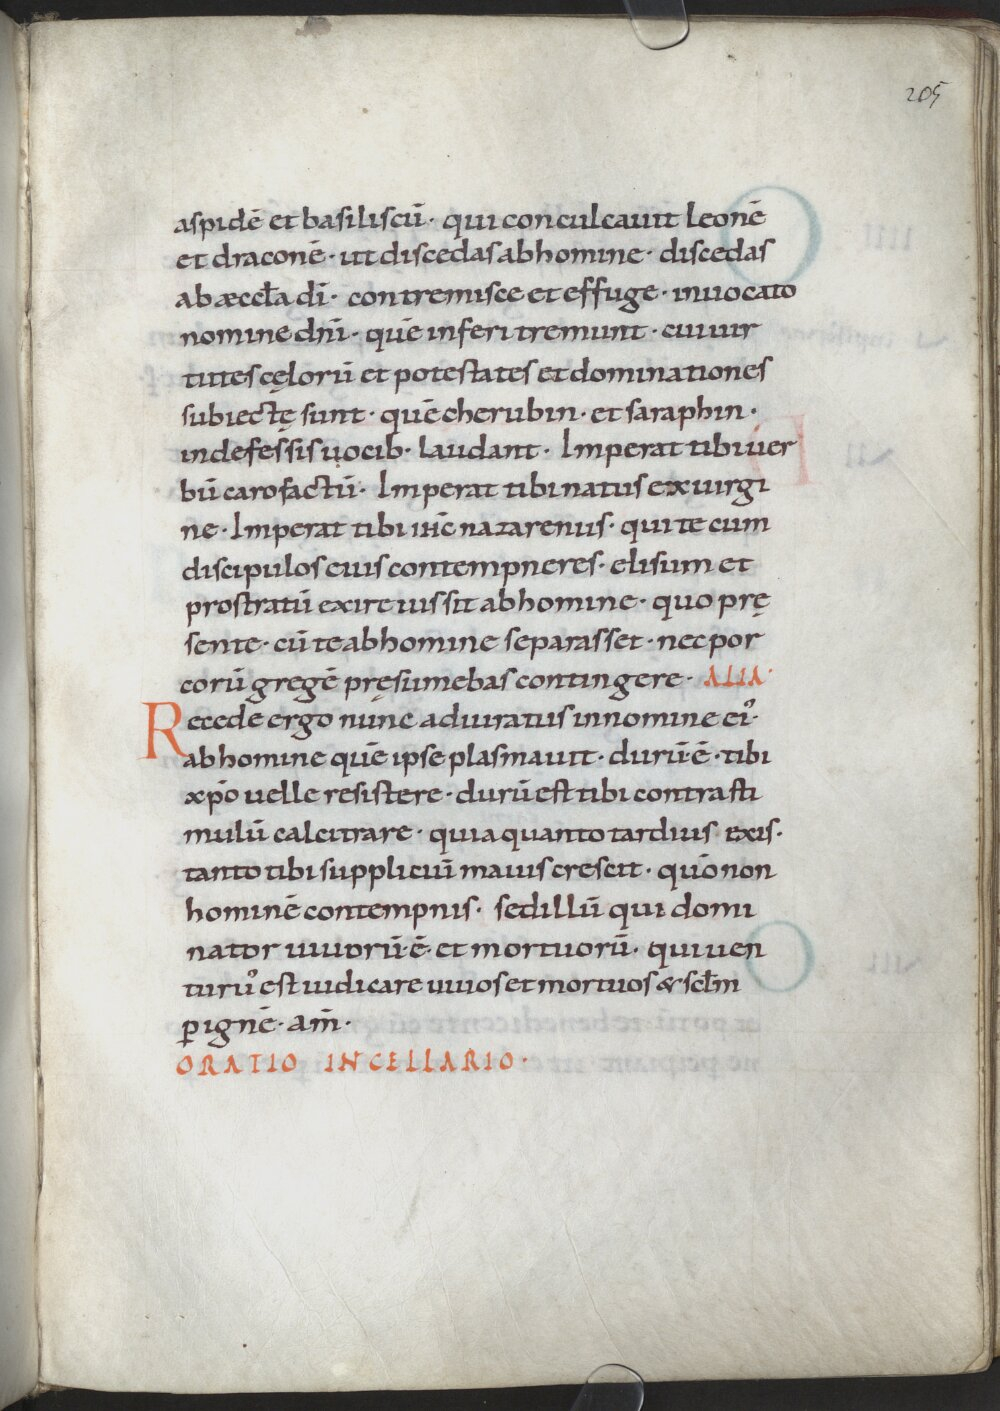 205
aspidē et basiliscū· qui conculcauit leonē
et draconē· ut discedas abhomine· discedas
ab æccl̄a dī· contremisce et effuge· inuocato
nomine dn̄i· quē inferi tremunt· cui uir
tutes cęlorū et potestates et dominationes
subiectę sunt· quē cherubin· et saraphin·
indefessis uocib· laudant· Imperat tibi uer
bū caro factū· Imperat tibi natus ex uirgi
ne· Imperat tibi ihc̄ nazarenus· qui te cum
discipulos eius contempneres· elisum et
prostratū exire iussit ab homine· quo prę
sente· cū te ab homine separasset· nec por
corū gregē pręsumebas contingere· ALIA·
Recede ergo nunc adiuratus in nomine ei᾽·
ab homine quē ipse plasmauit· durū·ē·tibi
xp̄o uelle resistere· durū est tibi contra sti
mulū calcitrare· quia quanto tardius exis·
tanto tibi suppliciū maius crescit· quō non
hominē contempnis· sed illū qui domi
nator uiuorū·ē· et mortuorū· qui uen
turu᾽ est iudicare uiuos et mortuos & scl̄m
ꝑ ignē· am̄·
ORATIO IN CELLARIO·